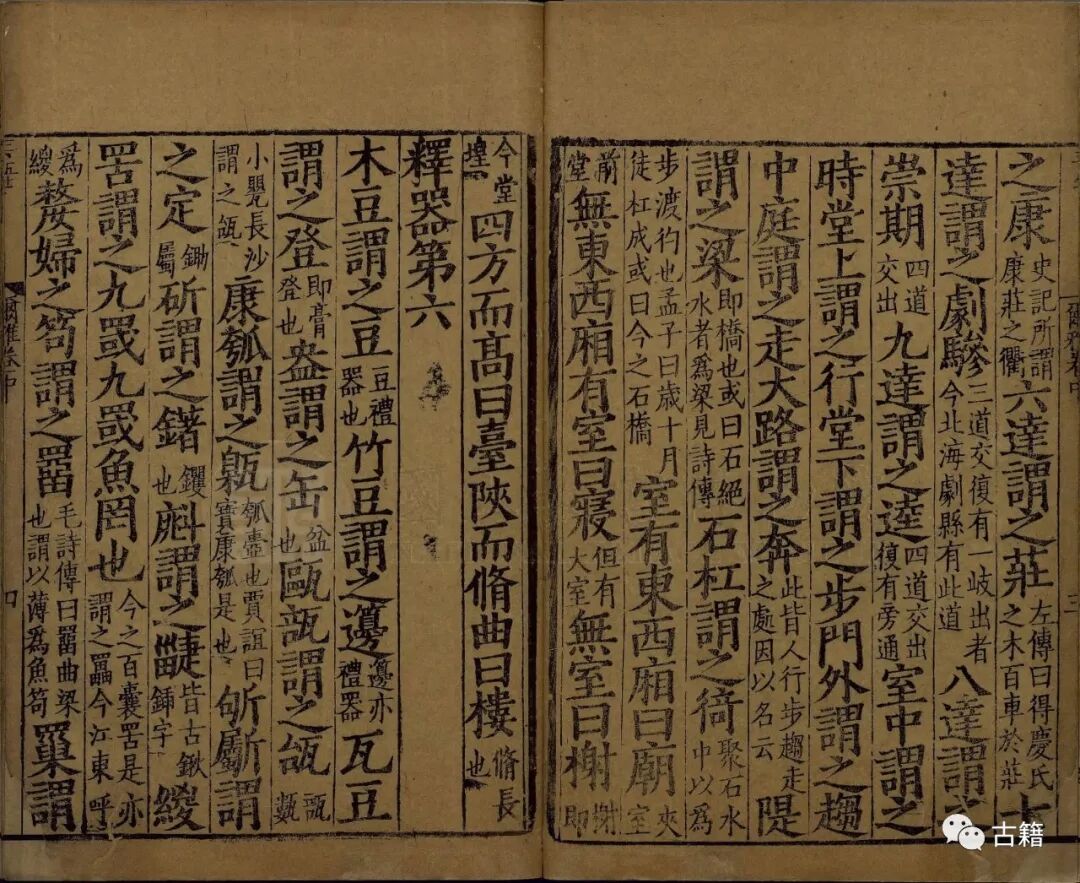 之康史記所謂康莊之衢六達謂之莊左傳曰得慶氏之木百車於莊七
達謂之劇驂三道交復有一岐出者今北海劇縣有此道八達謂之
崇期四道交出九達謂之逵四道交出復有旁通室中謂之
時堂上謂之行堂下謂之步門外謂之趨
中庭謂之走大路謂之奔此皆人行步趨走之處因以名云隄
謂之梁即橋也或曰石絕水者為梁見詩傳石杠謂之徛聚石水中以為
步渡彴也孟子曰歲十月徒杠成或曰今之石橋室有東西廂曰廟夾室
前堂無東西廂有室曰寢但有大室無室曰榭榭即
今堂堭四方而高曰臺陝而脩曲曰樓脩長也
釋器第六
木豆謂之豆豆禮器也竹豆謂之籩籩亦禮器瓦豆
謂之登即膏登也盎謂之缶盆也甌瓿謂之瓵瓿甊
小甖長沙謂之瓵康瓠謂之甈瓠壺也賈誼曰寶康瓠是也斪斸謂
之定鋤屬斫謂之鐯钁也㪺謂之疀皆古鍬鍤字緵
罟謂之九罭九罭魚罔也今之百囊罟是亦謂之䍡今江東呼
為緵嫠婦之笱謂之罶毛詩傳曰罶曲梁也謂以薄為魚笱罺謂
爾雅卷中
三
爾雅卷中
四
古籍